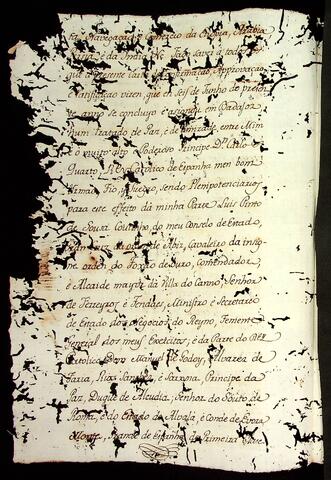 ta, Navegação, Comercio da Ethiopia, Arabia
Persia, e da India &c. Faço saber a todos
que a presente Carta de Confirmação, Approvação
Ratificação virem, que em Seis de Junho do presen
te anno se concluyo e assignou em Badajoz
hum Tratado de Paz, e de Amizade entre Mim
e o muito alto e Poderoso Principe Dn. Carlos
Quarto, Rey Catolico de Espanha meu bom
Irmão, Tio, e Sogro, sendo Plenipotenciarios
para este effeito da minha Parte Luis Pinto
de Souza Coutinho, do meu Conselo de Estado,
da ordem de Aviz, Cavaleiro da insig
ne ordem do Tozão de Ouro, Comendador,
e Alcaide mayor da Villa do Canno, Senhor
de Ferreyros e Tendaes, Ministro e Secretario
de Estado dos Negocios do Reyno, Tenente
General dos meus Exercitos; e da Parte do Rey
Catolico Dom Manuel de Godoy, Alvarez de
Faria, Rios Sanches, e Sarzosa, Principe da
Paz, Duque de Alcudia, Senhor do Souto de
Roma, e do Estado de Albalá, e Conde de Evora
Monte, Grande de Espanha da Primeira Clase